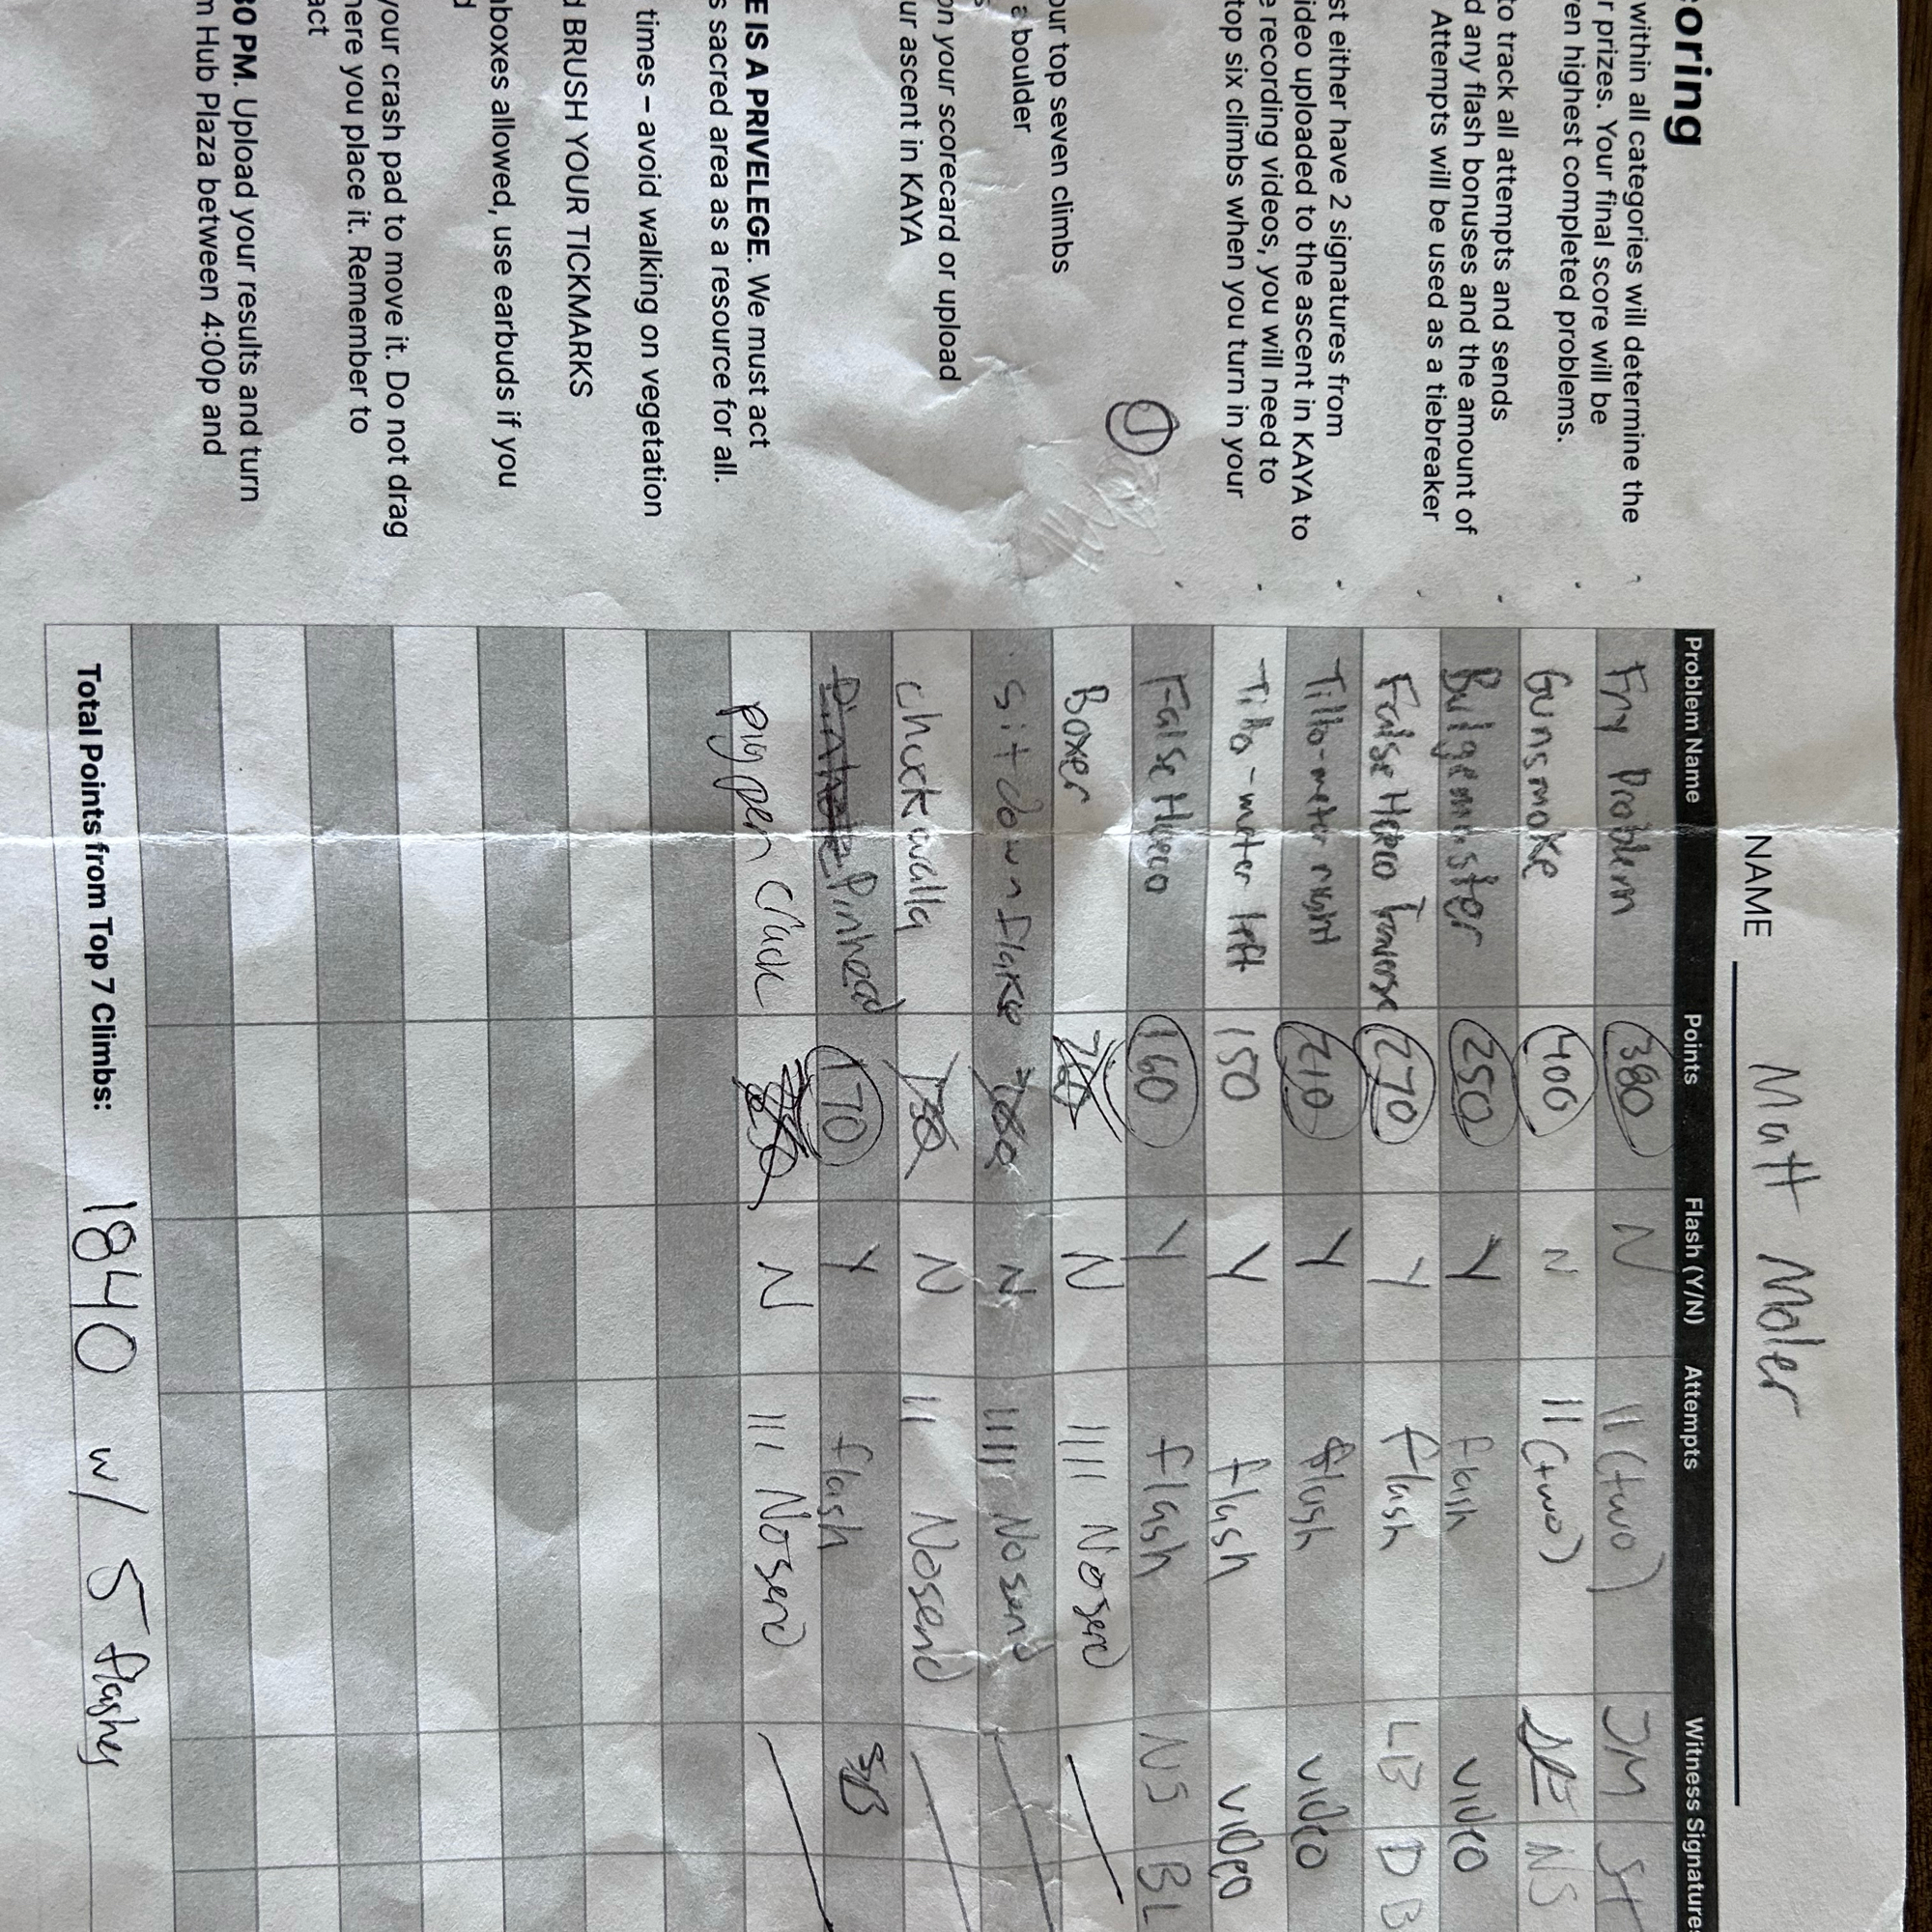 oring
within all categories will determine the
r prizes. Your final score will be
en highest completed problems.
to track all attempts and sends
d any flash bonuses and the amount of
Attempts will be used as a tiebreaker
st either have 2 signatures from
ideo uploaded to the ascent in KAYA to
e recording videos, you will need to
top six climbs when you turn in your
our top seven climbs
a boulder
on your scorecard or upload
ur ascent in KAYA
E IS A PRIVELEGE. We must act
s sacred area as a resource for all.
times – avoid walking on vegetation
d BRUSH YOUR TICKMARKS
nboxes allowed, use earbuds if you
d
your crash pad to move it. Do not drag
here you place it. Remember to
act
30 PM. Upload your results and turn
m Hub Plaza between 4:00p and
NAME Matt Moler
Problem Name Points Flash (Y/N) Attempts Witness Signatures
Fry Problem 380 N II (two) JM ST
Gunsmoke 400 N II (two) NS
Bulgemaster 250 Y flash video
False Hueco Traverse 270 Y flash LB DB
Tilto-meter right 210 Y flash video
Tilto-meter left 150 Y flash video
False Hueco 160 Y flash NS BL
Boxer N IIII No send
Sit down flake N IIII No send
Chuckwalla N II No send
Pinhead 170 Y flash SB
pigpen crack N III No send
Total Points from Top 7 Climbs: 1840 w/ 5 flashes